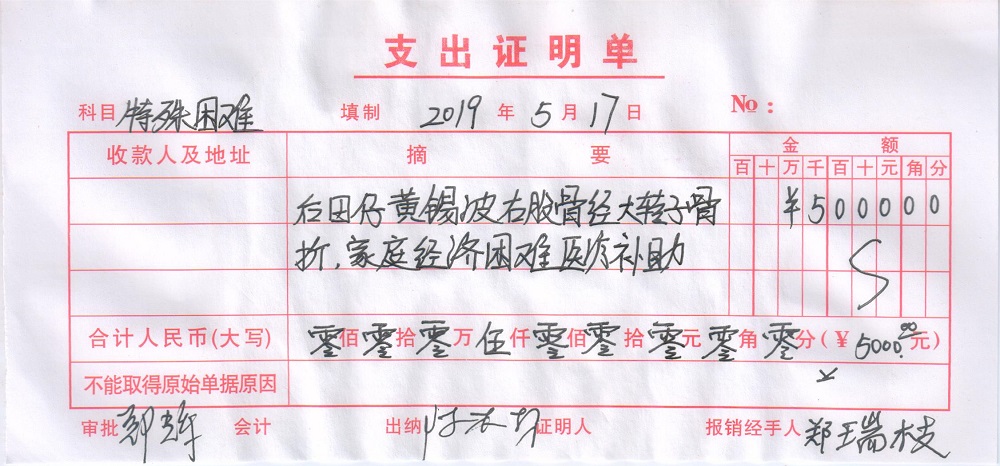 支出证明单
科目 特殊困难 填制 2019 年 5 月 17 日 №:
收款人及地址 摘要 金额
百 十 万 千 百 十 元 角 分
后田仔黄锡波右股骨经大转子骨 ¥500000
折,家庭经济困难医疗补助
合计人民币(大写) 零佰零拾零万伍仟零佰零拾零元零角零分(¥5000.00元)
不能取得原始单据原因
审批 郑 会计 出纳 证明人 报销经手人 郑瑞枝